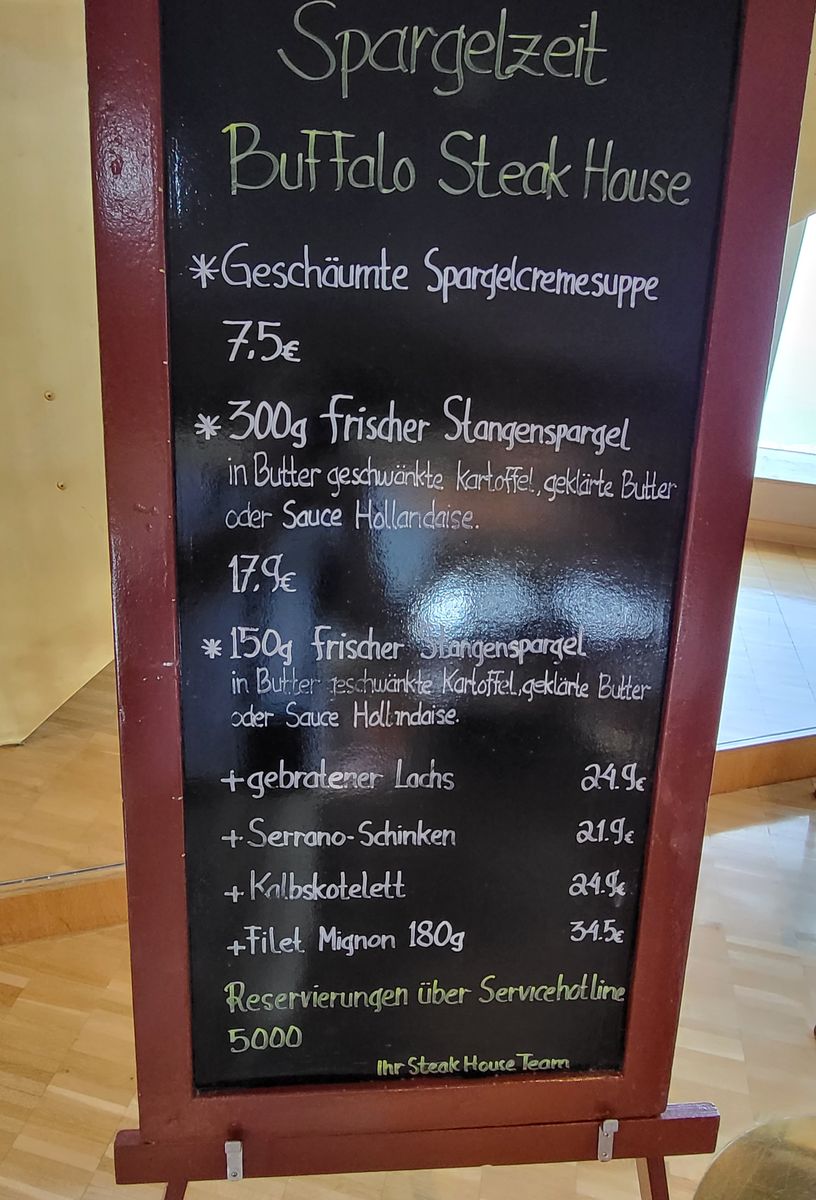 Spargelzeit
Buffalo Steak House
*Geschäumte Spargelcremesuppe
7.5€
*300g frischer Stangenspargel
in Butter geschwänkte Kartoffel, geklärte Butter
oder Sauce Hollandaise.
17.9€
*150g frischer Stangenspargel
in Butter geschwänkte Kartoffel, geklärte Butter
oder Sauce Hollandaise.
+gebratener Lachs 24.9€
+Serrano-Schinken 21.9€
+Kalbskotelett 24.9€
+Filet Mignon 180g 34.5€
Reservierungen über Servicehotline
5000
Ihr Steak House Team